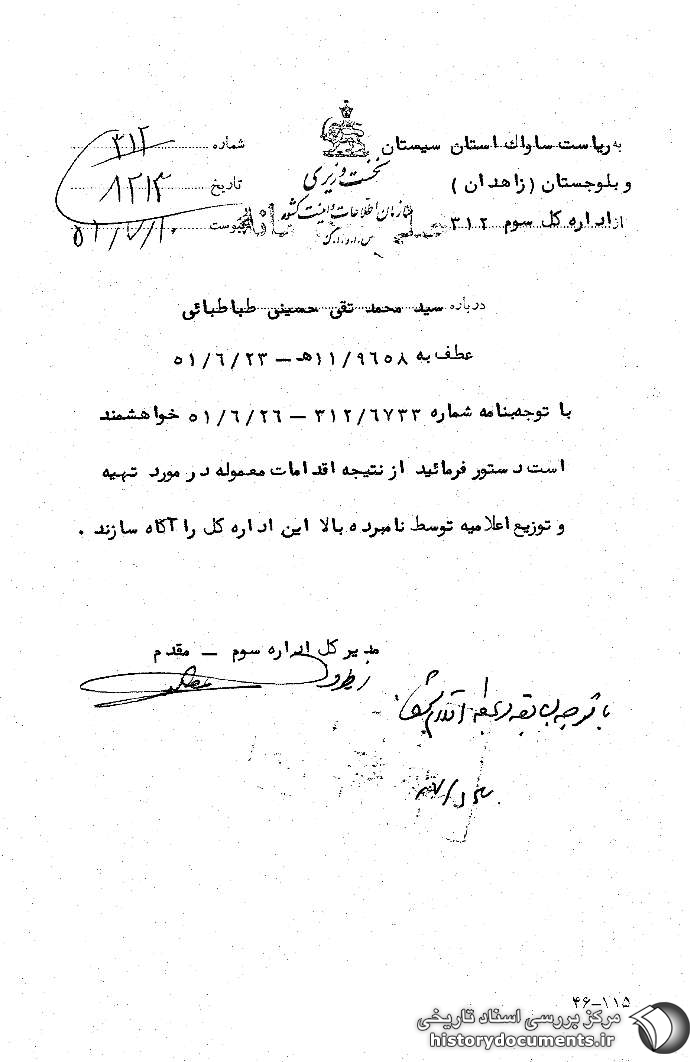 به ریاست ساواک استان سیستان
و بلوچستان (زاهدان)
از اداره کل سوم ۳۱۲
نخست وزیری
سازمان اطلاعات و امنیت کشور
س.ا.و.ا.ک
شماره ۳۱۲
تاریخ
پیوست ۵۱/۷/۱۰
درباره سید محمد تقی حسینی طباطبائی
عطف به ۱۱/۹۶۵۸ه‍ – ۵۱/۶/۲۳
با توجه بنامه شماره ۳۱۲/۶۷۳۳ – ۵۱/۶/۲۶ خواهشمند
است دستور فرمائید از نتیجه اقدامات معموله در مورد تهیه
و توزیع اعلامیه توسط نامبرده بالا این اداره کل را آگاه سازند .
مدیر کل اداره سوم – مقدم
با توجه بسابقه
۴۶-۱۱۵
مرکز بررسی اسناد تاریخی
historydocuments.ir